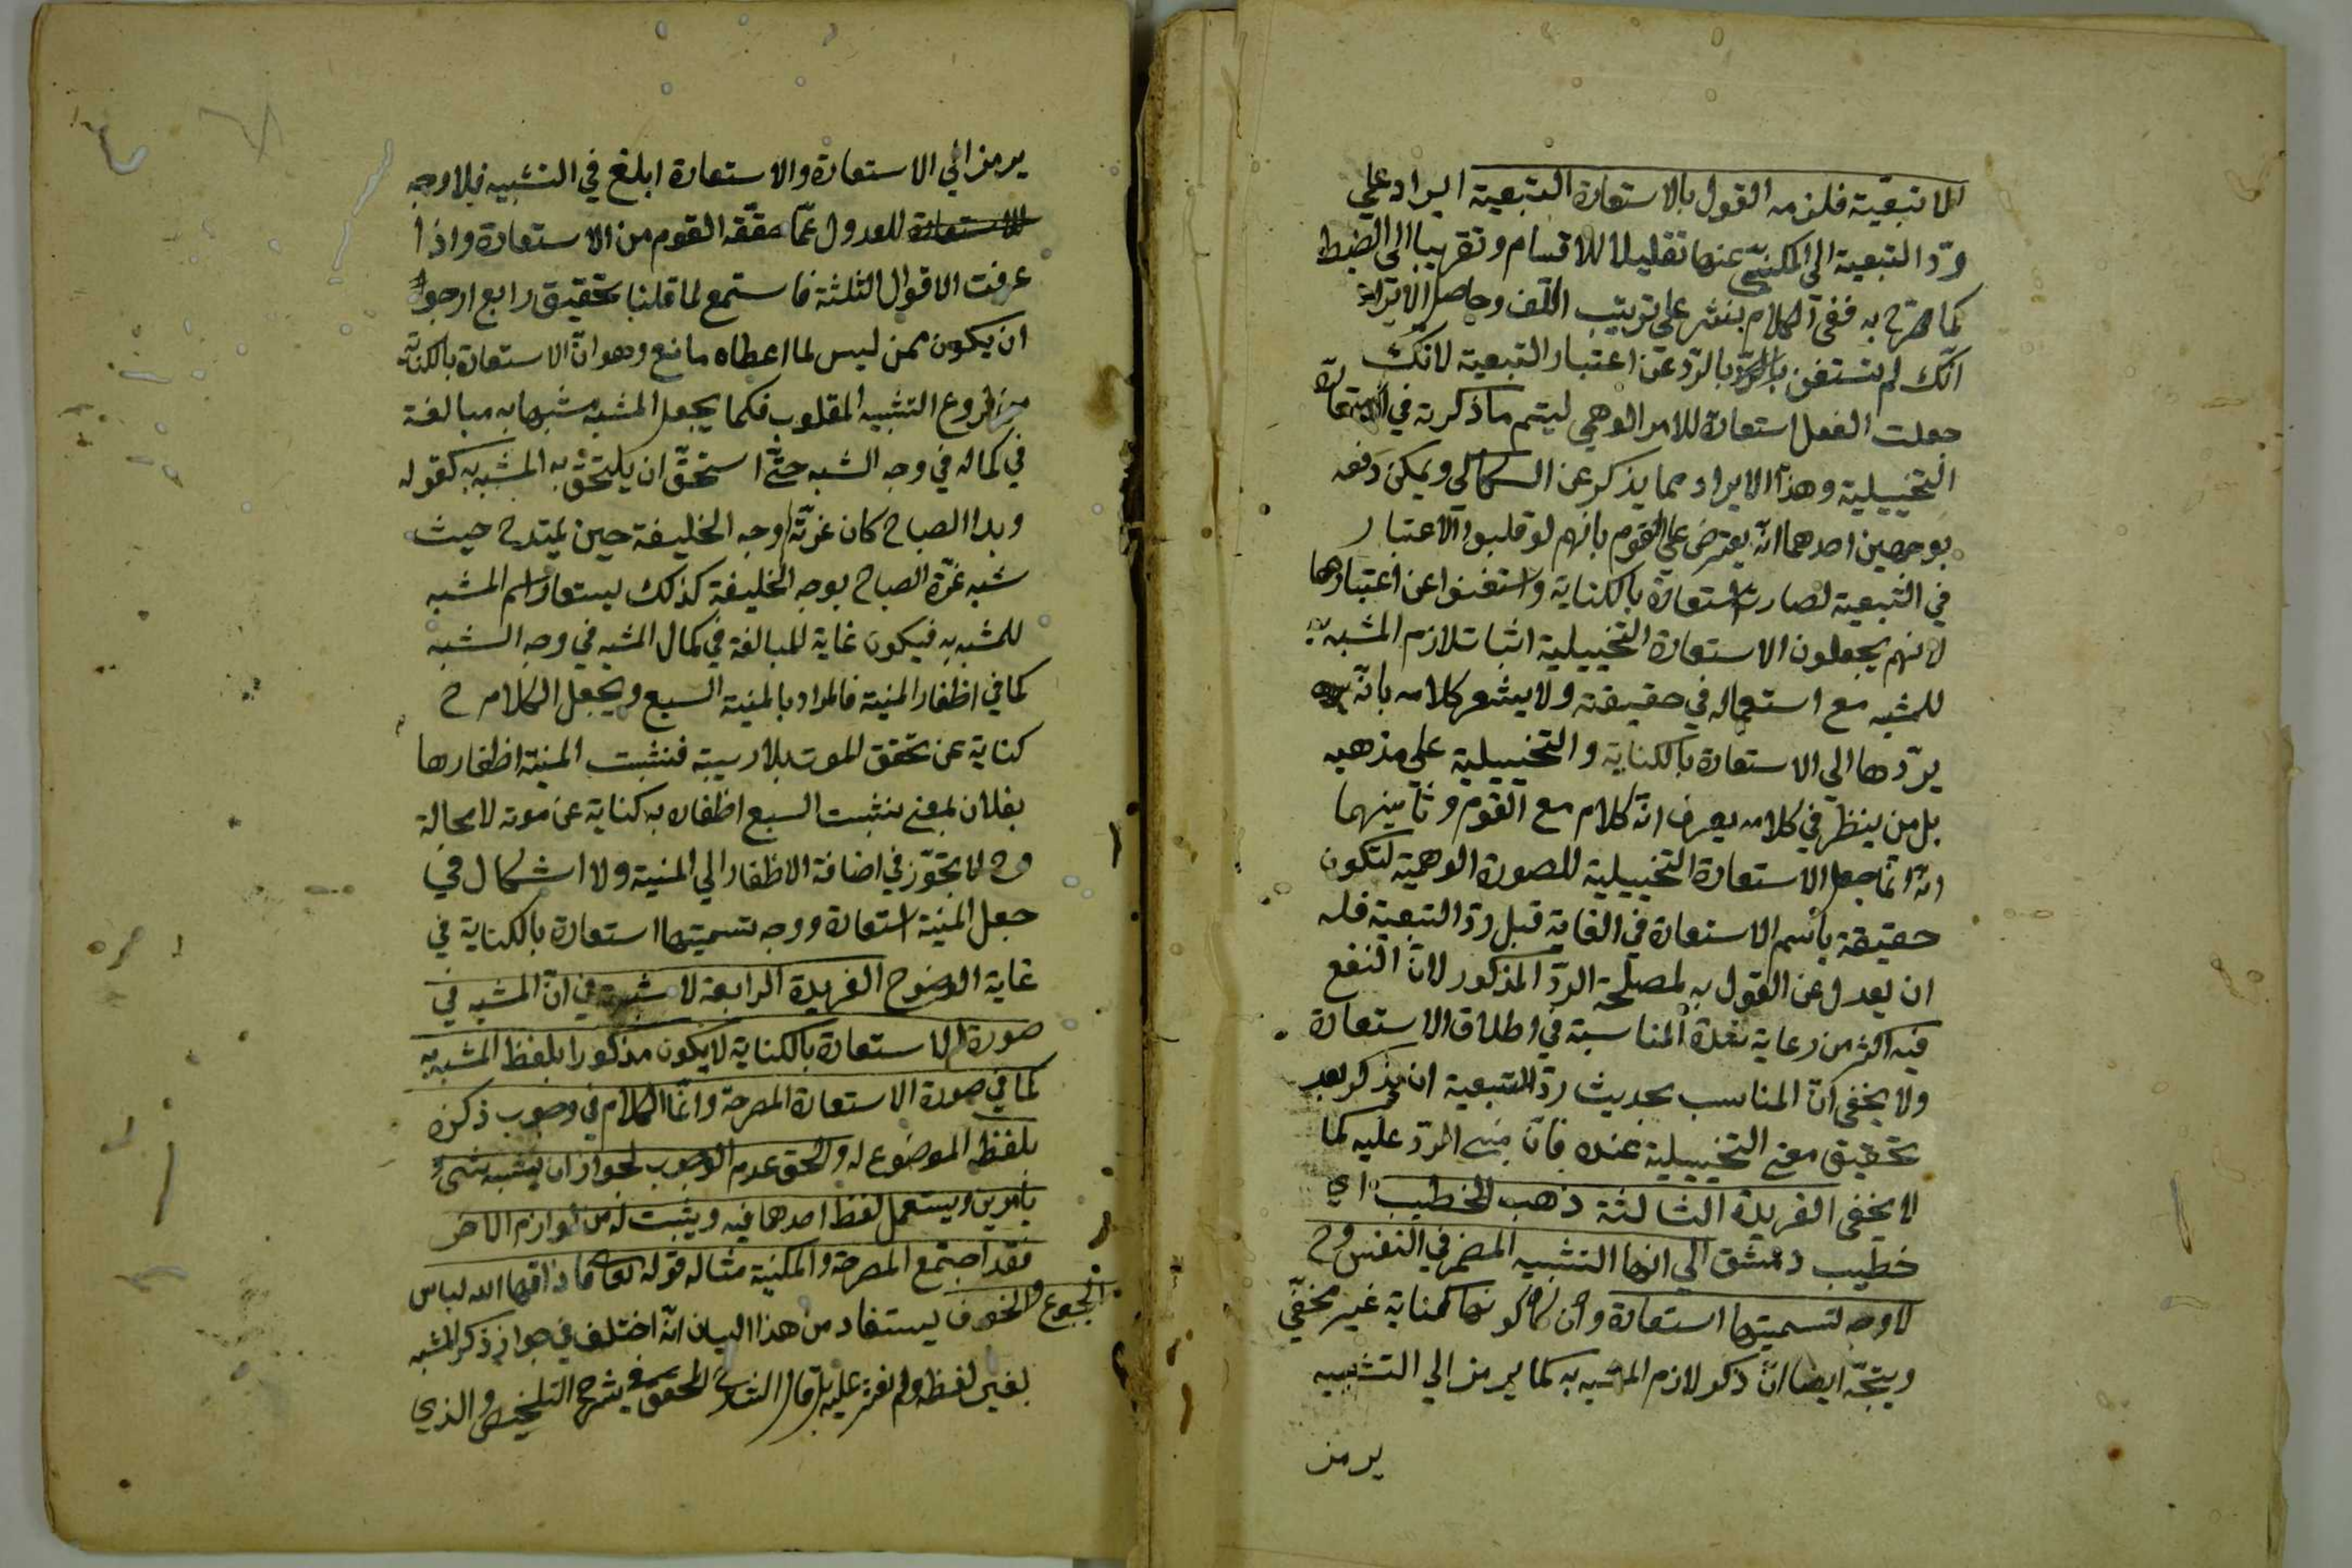 للا تبعية فلزمه القول بالاستعارة التبعية ايراد علي
ردّ التبعية الى المكنيّ عنها تقليلا للاقسام وتقريبا الى الضبط
كما صرّح به ففي الكلام نشر علي ترتيب اللّف وحاصل الايراد
انّك لم تستغن بالردّ عن اعتبار التبعية لانّك
جعلت الفعل استعارة للامر الوهمي ليتم ما ذكرته في الاستعارة
التخييلية وهذا الايراد مما يذكر عن السكاكي ويمكن دفعه
بوجهين احدهما انّه يعترض علي القوم بانهم لو قلبوا الاعتبار
في التبعية لصارت استعارة بالكناية واستغنوا عن اعتبارها
لانهم يجعلون الاستعارة التخييلية اثبات لازم المشبه به
للمشبه مع استعماله في حقيقته ولا يشعر كلامه بانّه
يردّها الي الاستعارة بالكناية والتخييلية علي مذهبه
بل من ينظر في كلامه يعرف انّه كلام مع القوم وثانيهما
انّه انّما جعل الاستعارة التخييلية للصورة الوهمية لتكون
حقيقة باسم الاستعارة في الغاية قبل ردّ التبعية فله
ان يعدل عن القول به لمصلحة الردّ المذكور لانّ النفع
فيه اكثر من رعاية المناسبة في اطلاق الاستعارة
ولا يخفى انّ المناسب بحديث ردّ التبعية ان يذكر بعد
تحقيق معنى التخييلية عنده فانّ مبنى الردّ عليه كما
لا يخفى الفريدة الثالثة ذهب الخطيب اي
خطيب دمشق الي انها التشبيه المضمر في النفس وح
لا وجه لتسميتها استعارة وان كان كونها كناية غير مخفيّ
ويتجّه ايضا انّ ذكر لازم المشبه به كما يرمز الي التشبيه
يرمز
يرمز الي الاستعارة والاستعارة ابلغ في التشبيه فلا وجه
للاستعارة للعدول عمّا حققه القوم من الاستعارة واذا
عرفت الاقوال الثلثة فاستمع لما قلنا بتحقيق رابع ارجو
ان يكون ممن ليس لما اعطاه مانع وهو انّ الاستعارة بالكناية
من فروع التشبيه المقلوب فكما يجعل المشبه مشبها به مبالغة
في كماله في وجه الشبه حتّى استحقّ ان يلتحق به المشبه به كقوله
وبدا الصباح كان غرّته وجه الخليفة حين يمتدح حيث
شبه غرّة الصباح بوجه الخليفة كذلك يستعار اسم المشبه
للمشبه به فيكون غاية للمبالغة في كمال المشبه في وجه الشبه
كما في اظفار المنية فالمراد بالمنية السبع ويجعل الكلام ح
كناية عن تحقق الموت بلا ريبة فنشبت المنية اظفارها
بفلان بمعنى نشبت السبع اظفاره به كناية عن موته لا محالة
وح لا تجوّز في اضافة الاظفار الي المنية ولا اشكال في
جعل المنية استعارة ووجه تسميتها استعارة بالكناية في
غاية الوضوح الفريدة الرابعة لا شبهة في انّ المشبه في
صورة الاستعارة بالكناية لا يكون مذكورا بلفظ المشبه به
كما في صورة الاستعارة المصرحة وانّما الكلام في وجوب ذكره
بلفظه الموضوع له والحق عدم الوجوب لجواز ان يشبه شيء
بامرين ويستعمل لفظ احدهما فيه ويثبت له من لوازم الاخر
فقد اجتمع المصرحة والمكنية مثاله قوله تعالى فاذاقها الله لباس
الجوع والخوف يستفاد من هذا البيان انّه اختلف في جواز ذكر المشبه
لغير لفظه ولم نعثر عليه بل قال الشارح المحقق في شرح التلخيص والذي